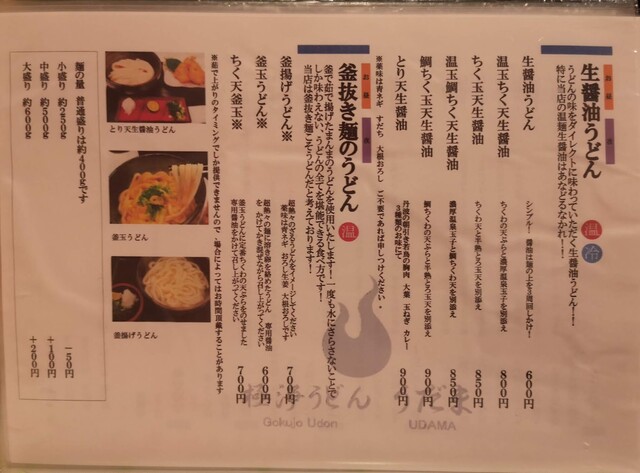 生醤油うどん 温 冷
うどんの味をダイレクトに味わっていただく生醤油うどん!!
特に当店の温麺生醤油はあなどるなかれ!!
生醤油うどん シンプル! 醤油は麺の上を3周回しかけ! 600円
温玉ちく天生醤油 ちくわの天ぷらと濃厚温泉玉子を別添え 800円
ちく玉天生醤油 ちくわ天と半熟とろ玉天を別添え 850円
温玉鯛ちく天生醤油 濃厚温泉玉子と鯛ちくわ天を別添え 850円
鯛ちく玉天生醤油 鯛ちくわの天ぷらと半熟とろ玉天を別添え 900円
とり天生醤油 丹波の朝引き若鳥の胸肉 大葉 玉ねぎ カレー
3種類のお味にて 900円
※薬味は青ネギ すだち 大根おろし ご不要であれば申しつけください。
釜抜き麺のうどん 温
釜で茹で揚げたまんまのうどんを使用いたします!一度も水にさらさないことで
しか味わえない、うどんの全てを堪能できる食べ方です!
当店は釜抜き麺こそうどんだと考えております!
釜揚げうどん※ 超熱々のざるうどんをイメージしてください
薬味は青ネギ おろし生姜 大根おろしです 700円
釜玉うどん※ 超熱々の麺に溶き卵を絡めたうどん 専用醤油
をかけてかき混ぜながら召し上がってください 700円
ちく天釜玉※ 釜玉うどんに定番ちくわの天ぷらをのせました
専用醤油をかけて召し上がってください
※茹で上がりのタイミングでしか提供できませんので、場合によってはお時間頂戴することがあります
とり天生醤油うどん
釜玉うどん
釜揚げうどん
麺の量 普通盛りは約400gです
小盛り 約250g −50円
中盛り 約500g +100円
大盛り 約600g +200円
極浄うどん うだま
Gokujo Udon UDAMA